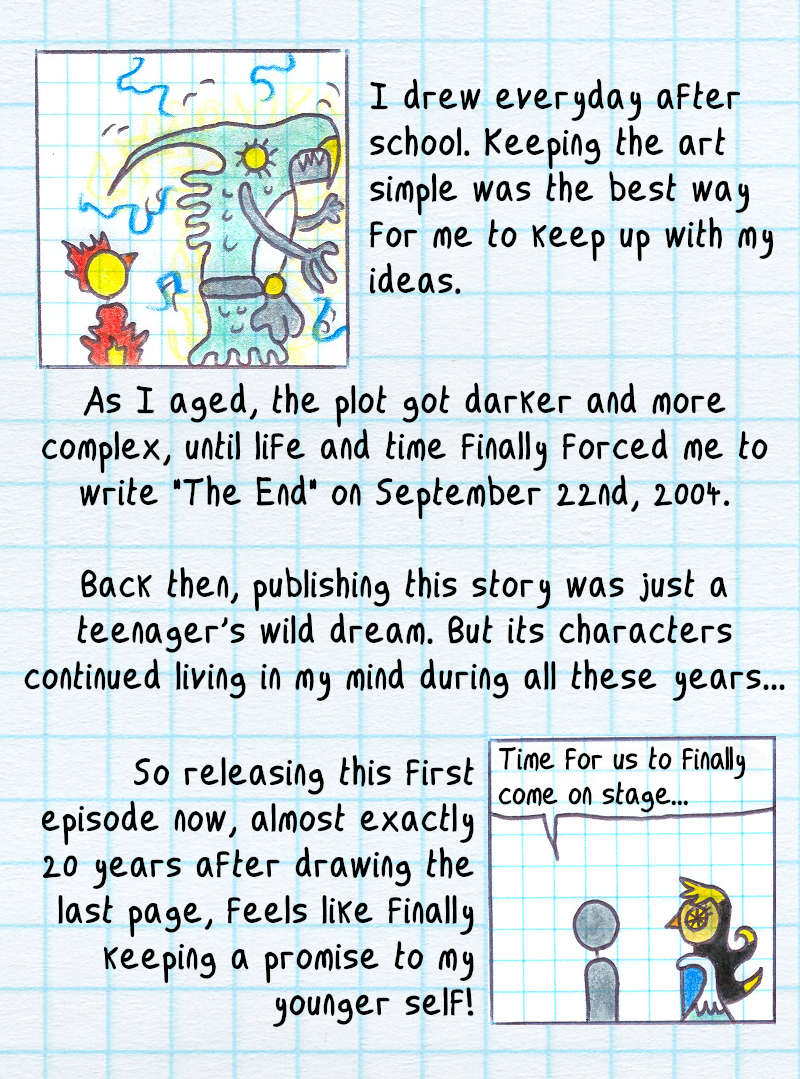 I drew everyday after
school. Keeping the art
simple was the best way
for me to keep up with my
ideas.
As I aged, the plot got darker and more
complex, until life and time finally forced me to
write "The End" on September 22nd, 2004.
Back then, publishing this story was just a
teenager's wild dream. But its characters
continued living in my mind during all these years...
So releasing this first
episode now, almost exactly
20 years after drawing the
last page, feels like finally
keeping a promise to my
younger self!
Time for us to finally
come on stage...